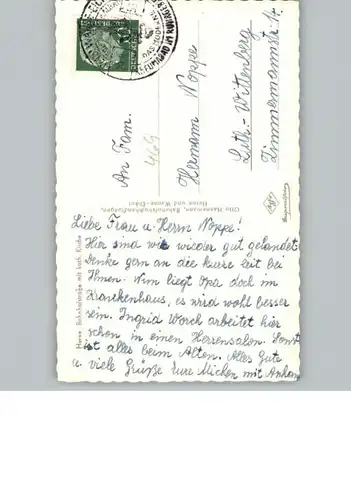 Liebe Frau u. Herrn Noppe!
Hier sind wir wieder gut gelandet
Denke gern an die kurze Zeit bei
Ihnen. Nun liegt Opa doch im
Krankenhaus, es wird wohl besser
sein. Ingrid Worch arbeitet hier
schon in einen Herrensalon. Sonst
ist alles beim Alten. Alles Gute
u. viele Grüße Eure Michen mit Anhang
An Fam.
Hermann Noppe
Luth.-Wittenberg
Zimmermannstr. 14
469
Herne Bahnhofstraße mit kath. Kirche
Otto Hansmann, Bahnhofsbuchhandlungen,
Herne und Wanne-Eickel
Agfa
10
DEUTSCHE